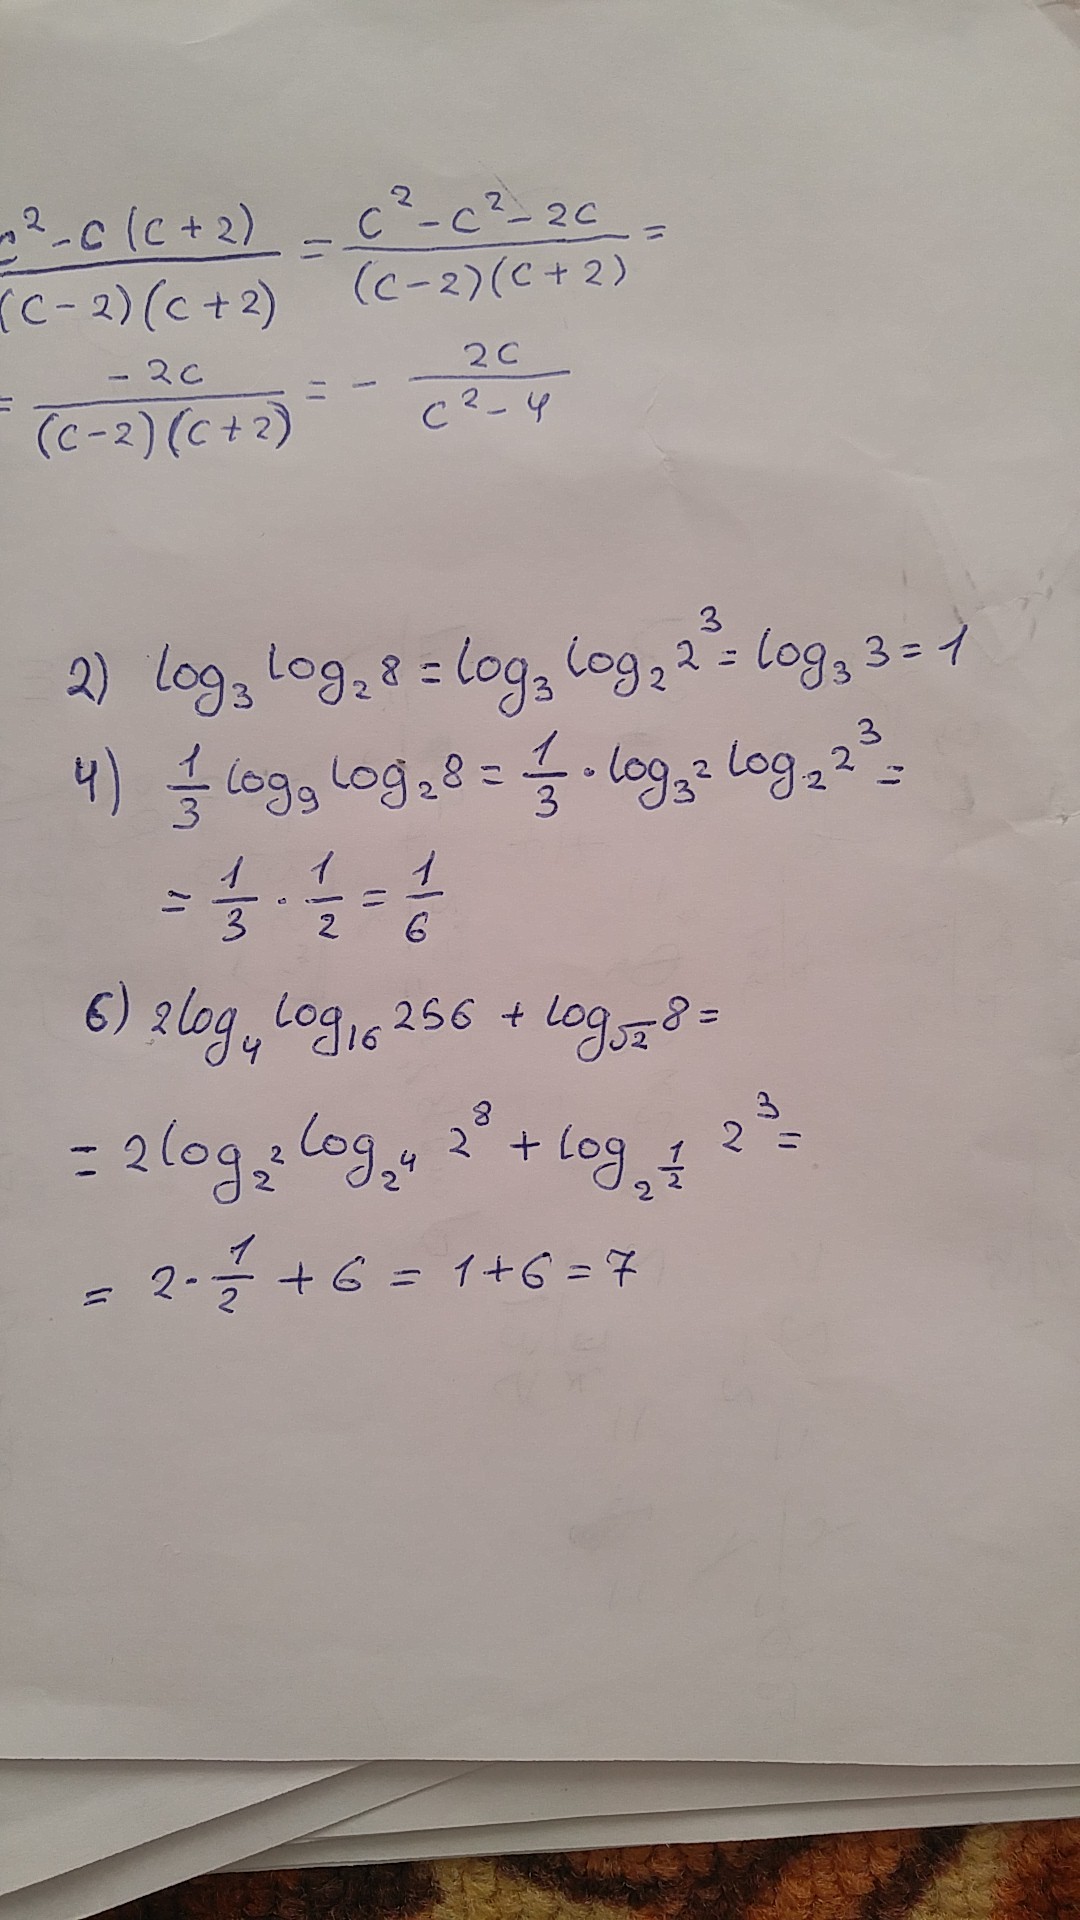 c² - c(c+2) / (c-2)(c+2) = c² - c² - 2c / (c-2)(c+2) =
= -2c / (c-2)(c+2) = - 2c / c² - 4
2) log₃ log₂ 8 = log₃ log₂ 2³ = log₃ 3 = 1
4) 1/3 log₉ log₂ 8 = 1/3 · log_3² log₂ 2³ =
= 1/3 · 1/2 = 1/6
6) 2 log₄ log₁₆ 256 + log_√2 8 =
= 2 log_2² log_2⁴ 2⁸ + log_2^1/2 2³ =
= 2 · 1/2 + 6 = 1 + 6 = 7